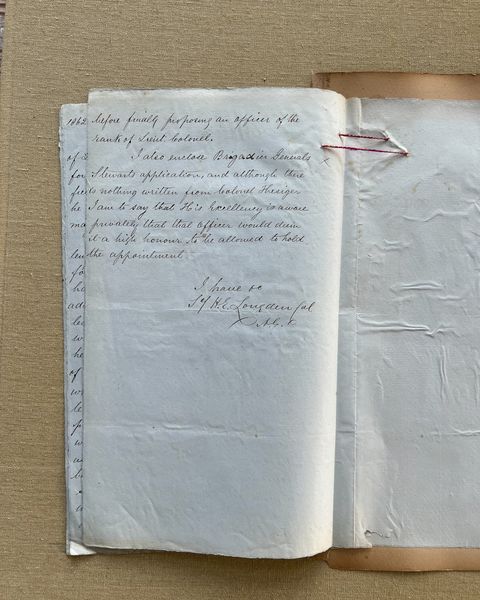 before finally proposing an officer of the
rank of Lieut Colonel.
I also enclose Brigadier Generals
Stewarts application, and although there
is nothing written from Colonel Thesiger
I am to say that His Excellency is aware
privately that that officer would deem
it a high honour to be allowed to hold
the appointment
I have &c
H. E. Longden Col